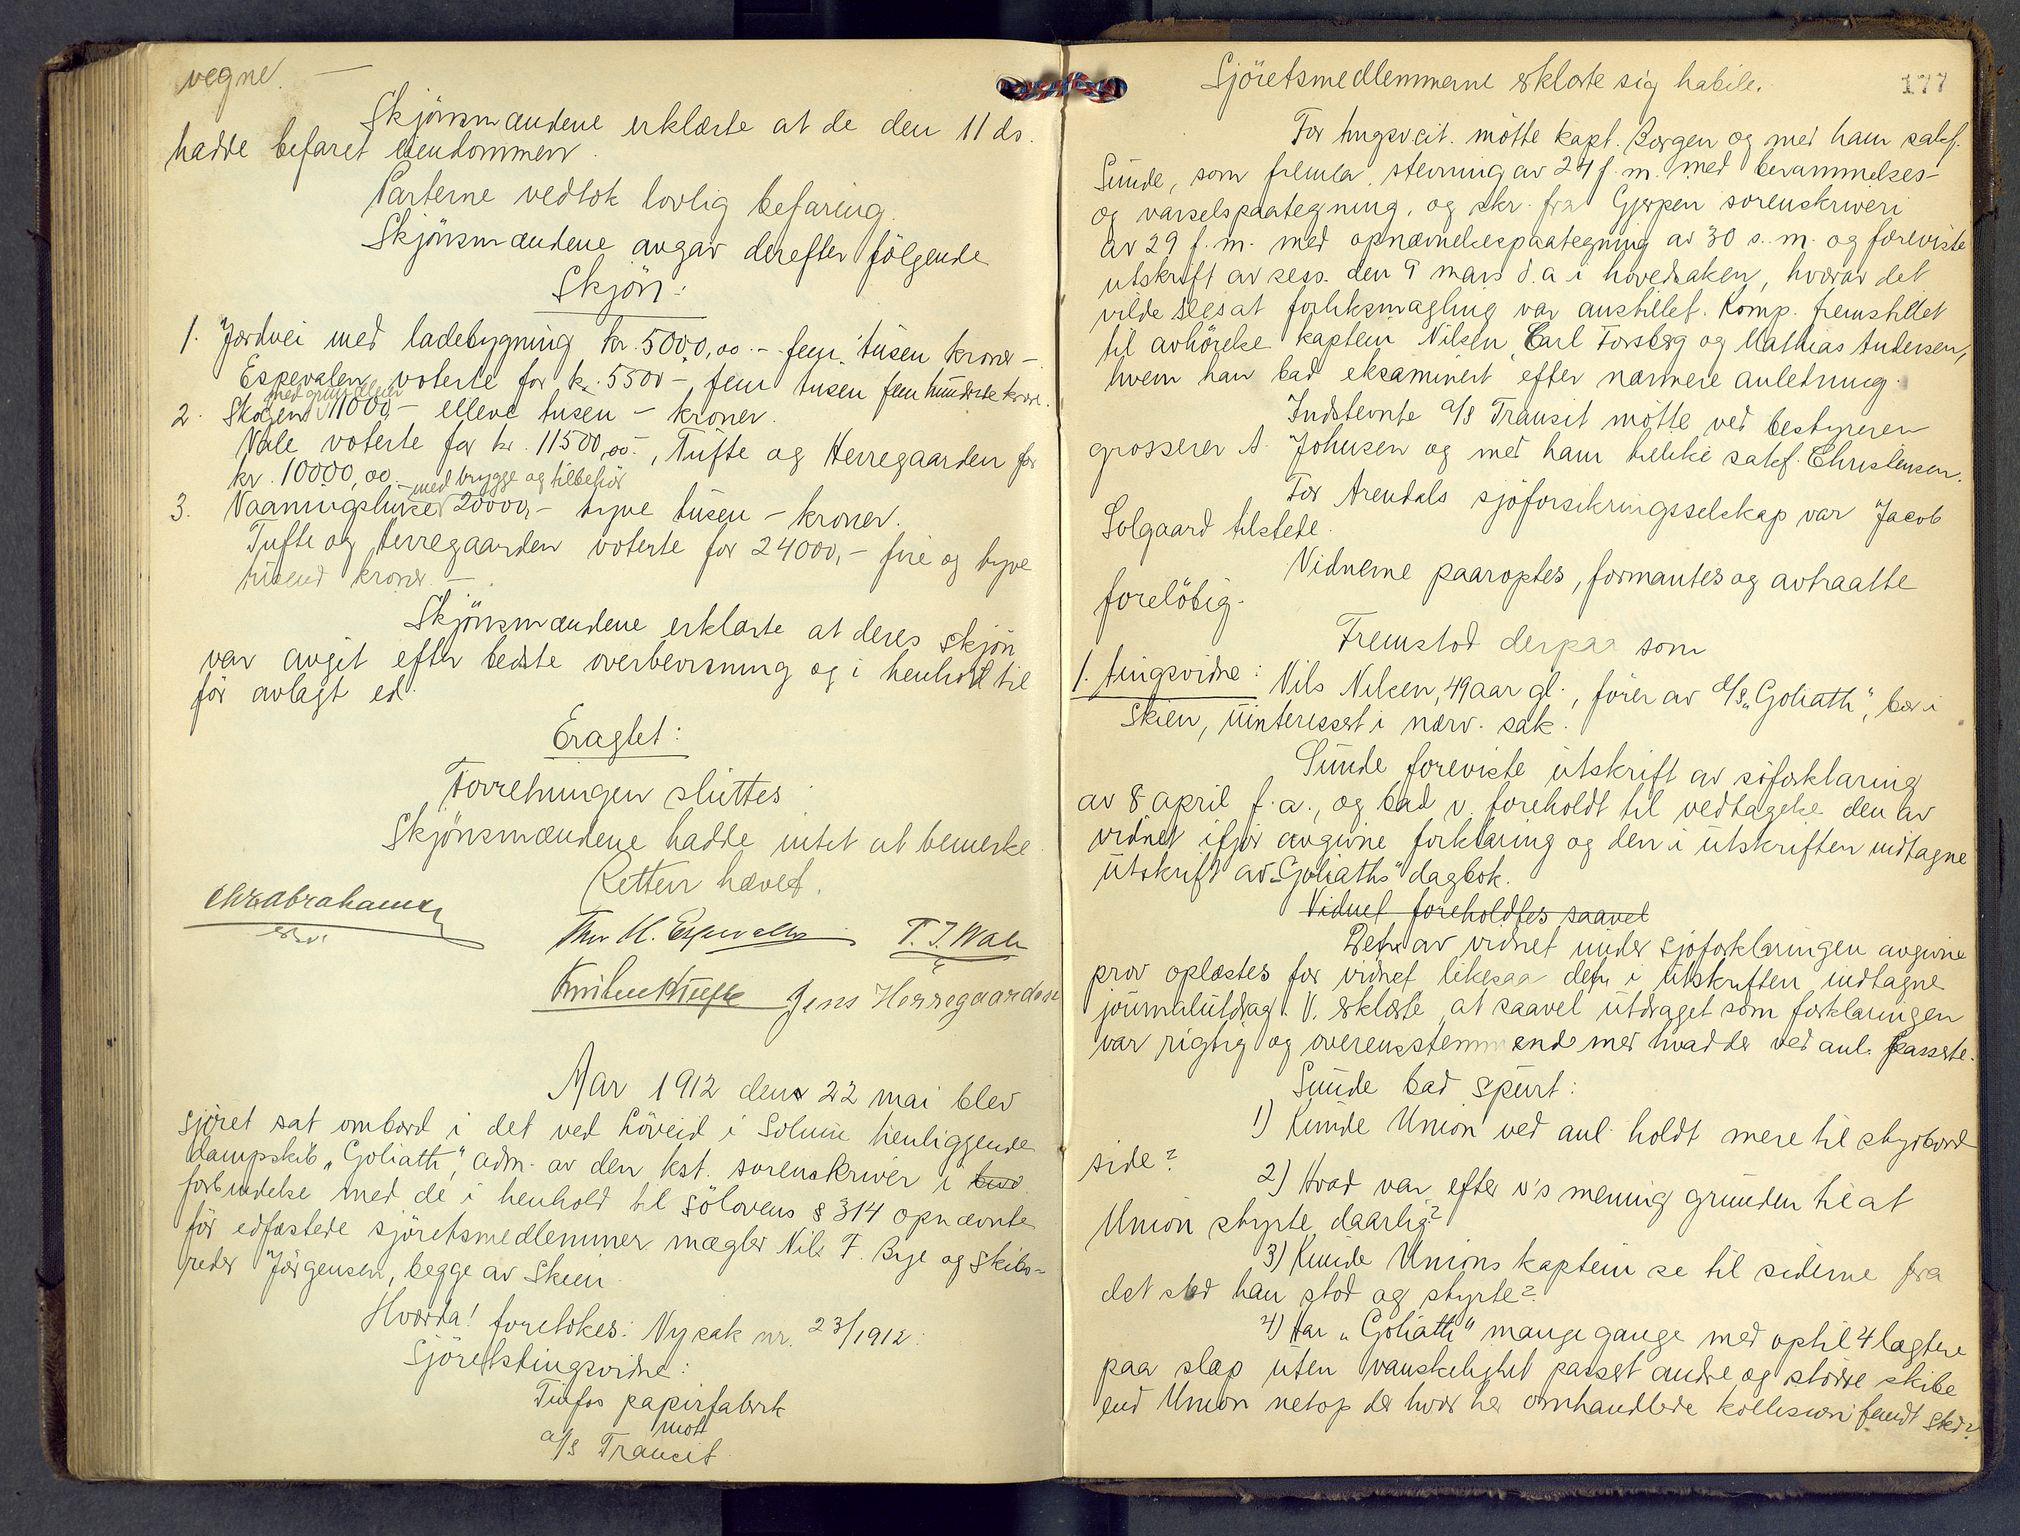 vegne. —
Skjönsmændene erklærte at de den 11 ds.
hadde befaret eiendommen.
Parterne vedtok lovlig befaring.
Skjönsmændene avgav derefter fölgende
Skjön:
1. Jordvei med ladebygning kr. 5000,00 – fem tusen kroner –
Espevalen voterte for kr. 5500 –, fem tusen fem hundrede kroner.
med grundleier
2. Skogen 11000,– elleve tusen – kroner.
Vale voterte for kr. 11500,00 –, Tufte og Herregaarden for
kr. 10000,00 –
med brygge og tilbehör
3. Vaaningshuset 20000,– tyve tusen – kroner.
Tufte og Herregaarden voterte for 24000,– fire og tyve
tusend kroner. –
Skjönsmændene erklærte at deres skjön
var avgit efter bedste overbevisning og i henhold til
för avlagt ed.
Eragtet:
Forretningen sluttes.
Skjönsmændene hadde intet at bemerke.
Retten hævet.
Chr Abrahamsen
Thor H. Espevalen T. J. Wale
Knut Tufte Jens Herregaarden
Aar 1912 den 22 mai blev
sjöret sat ombord i det ved Löveid i Solum henliggende
dampskib „Goliath”, adm. av den kst. sorenskriver i
forbindelse med de i henhold til sjölovens § 314 opnævnte
för edfæstede sjöretsmedlemmer mægler Nils F. Bye og skibs-
reder Jörgensen, begge av Skien.
Hvorda! foretokes: Ny sak nr. 23/1912:
Sjöretstingsvidne:
Tinfos papirfabrik
mot
a/s Transit.
177
Sjöretsmedlemmerne erklærte sig habile.
For tingsvcit. mötte kapt. Borgen og med ham sakf.
Sunde, som fremla stevning av 24 f. m. med berammelses-
og varselspaategning, og skr. fra Gjerpen sorenskriveri
av 29 f. m. med opnævnelsespaategning av 30 s. m. og foreviste
utskrift av sess. den 9 mars d. a i hovedsaken, hvorav det
vilde sees at forliksmægling var anstillet. Komp. fremstillet
til avhörelse kaptein Nilsen, Carl Forsberg og Mathias Andersen,
hvem han bad eksaminert efter nærmere anledning.
Indstevnte a/s Transit mötte ved bestyreren
grosserer A. Johnsen og med ham likeki sakf. Christensen.
For Arendals sjöforsikringsselskap var Jacob
Solgaard tilstede.
Vidnerne paaroptes, formantes og avtraatte
forelöbig.
Fremstod derpaa som
1. tingsvidne: Nils Nilsen, 49 aar gl., förer av d/s „Goliath”, bor i
Skien, uinteresset i nærv. sak.
Sunde foreviste utskrift av söforklaring
av 8 april f. a., og bad v. foreholdt til vedtagelse den av
vidnet ifjor avgivne forklaring og den i utskriften indtagne
utskrift av „Goliaths” dagbok.
Vidnet foreholdtes saavel
Det av vidnet under sjöforklaringen avgivne
prov oplæstes for vidnet likesaa det i utskriften indtagne
journalutdrag. V. erklærte at saavel utdraget som forklaringen
var rigtig og overensstemmende med hvad der ved anl. passerte.
Sunde bad spurt:
1) Kunde Union ved anl. holdt mere til styrbord
side?
2) Hvad var efter v's mening grunden til at
Union styrte daarlig?
3) Kunde Unions kaptein se til siderne fra
det sted han stod og styrte?
4) Har „Goliath” mange gange med optil 4 lægtere
paa slæp uten vanskelighet passert andre og större skibe
end Union netop der hvor her omhandlede kollision fandt sted?